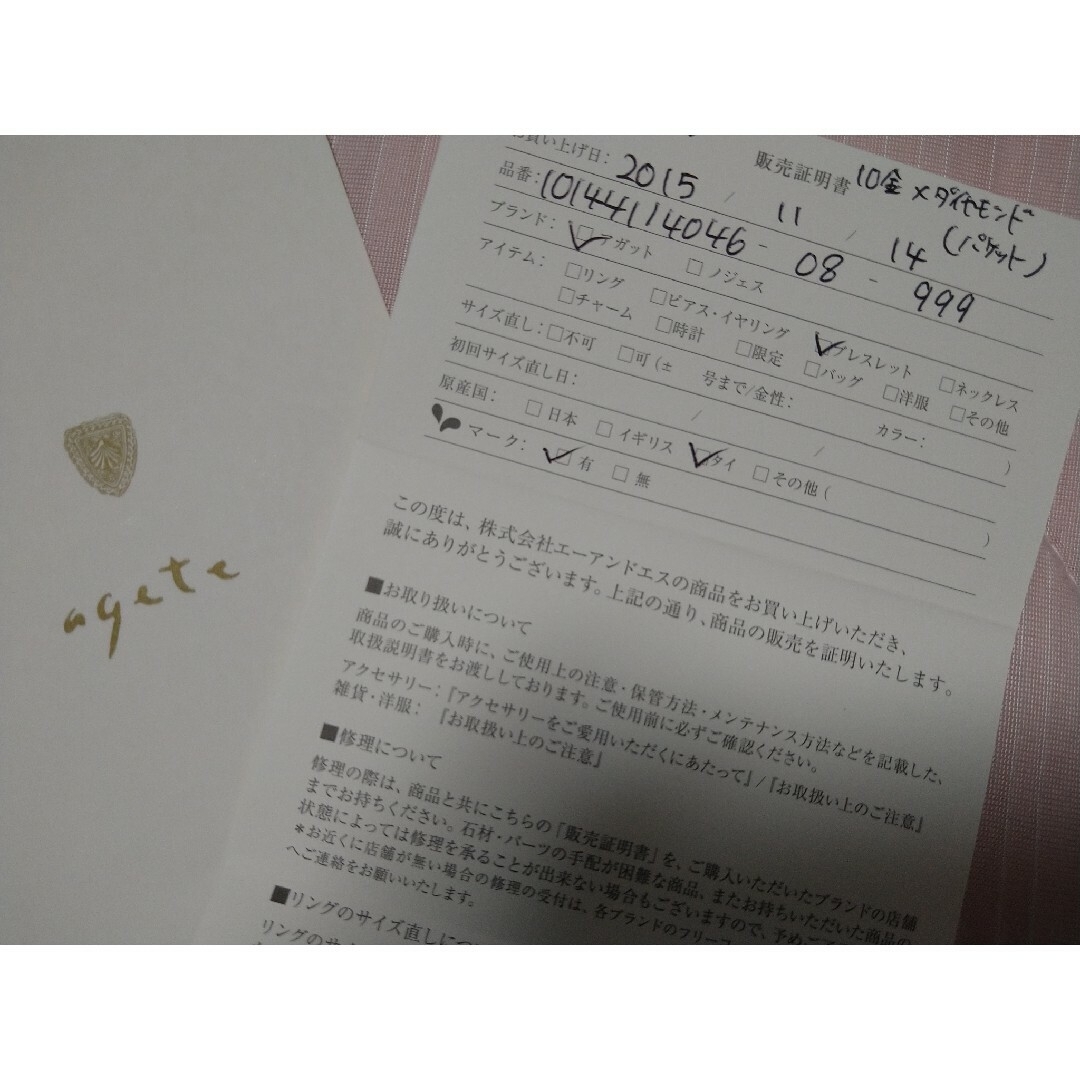 agete
販売証明書 10金×ダイヤモンド
(バゲット)
お買い上げ日: 2015 / 11 / 14
品番: 10144114046 - 08 - 999
ブランド: □アガット □ノジェス
アイテム: □リング □ピアス・イヤリング □ブレスレット □ネックレス
□チャーム □時計 □限定 □バッグ □洋服 □その他
サイズ直し: □不可 □可(± 号まで/金性: カラー: )
初回サイズ直し日: / /
原産国: □日本 □イギリス □タイ □その他( )
マーク: □有 □無
この度は、株式会社エーアンドエスの商品をお買い上げいただき、
誠にありがとうございます。上記の通り、商品の販売を証明いたします。
■お取り扱いについて
商品のご購入時に、ご使用上の注意・保管方法・メンテナンス方法などを記載した、
取扱説明書をお渡ししております。ご使用前に必ずご確認ください。
アクセサリー:『アクセサリーをご愛用いただくにあたって』/『お取扱い上のご注意』
雑貨・洋服: 『お取扱い上のご注意』
■修理について
修理の際は、商品と共にこちらの「販売証明書」を、ご購入いただいたブランドの店舗
までお持ちください。石材・パーツの手配が困難な商品、またお持ちいただいた商品の
状態によっては修理を承ることが出来ない場合もございますので、予めご
*お近くに店舗が無い場合の修理の受付は、各ブランドのフリー
へご連絡をお願いいたします。
■リングのサイズ直しについ
リングのサ